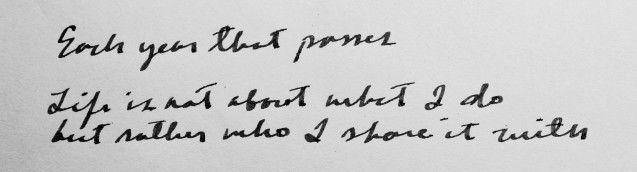 Each year that passes
Life is not about what I do
but rather who I share it with